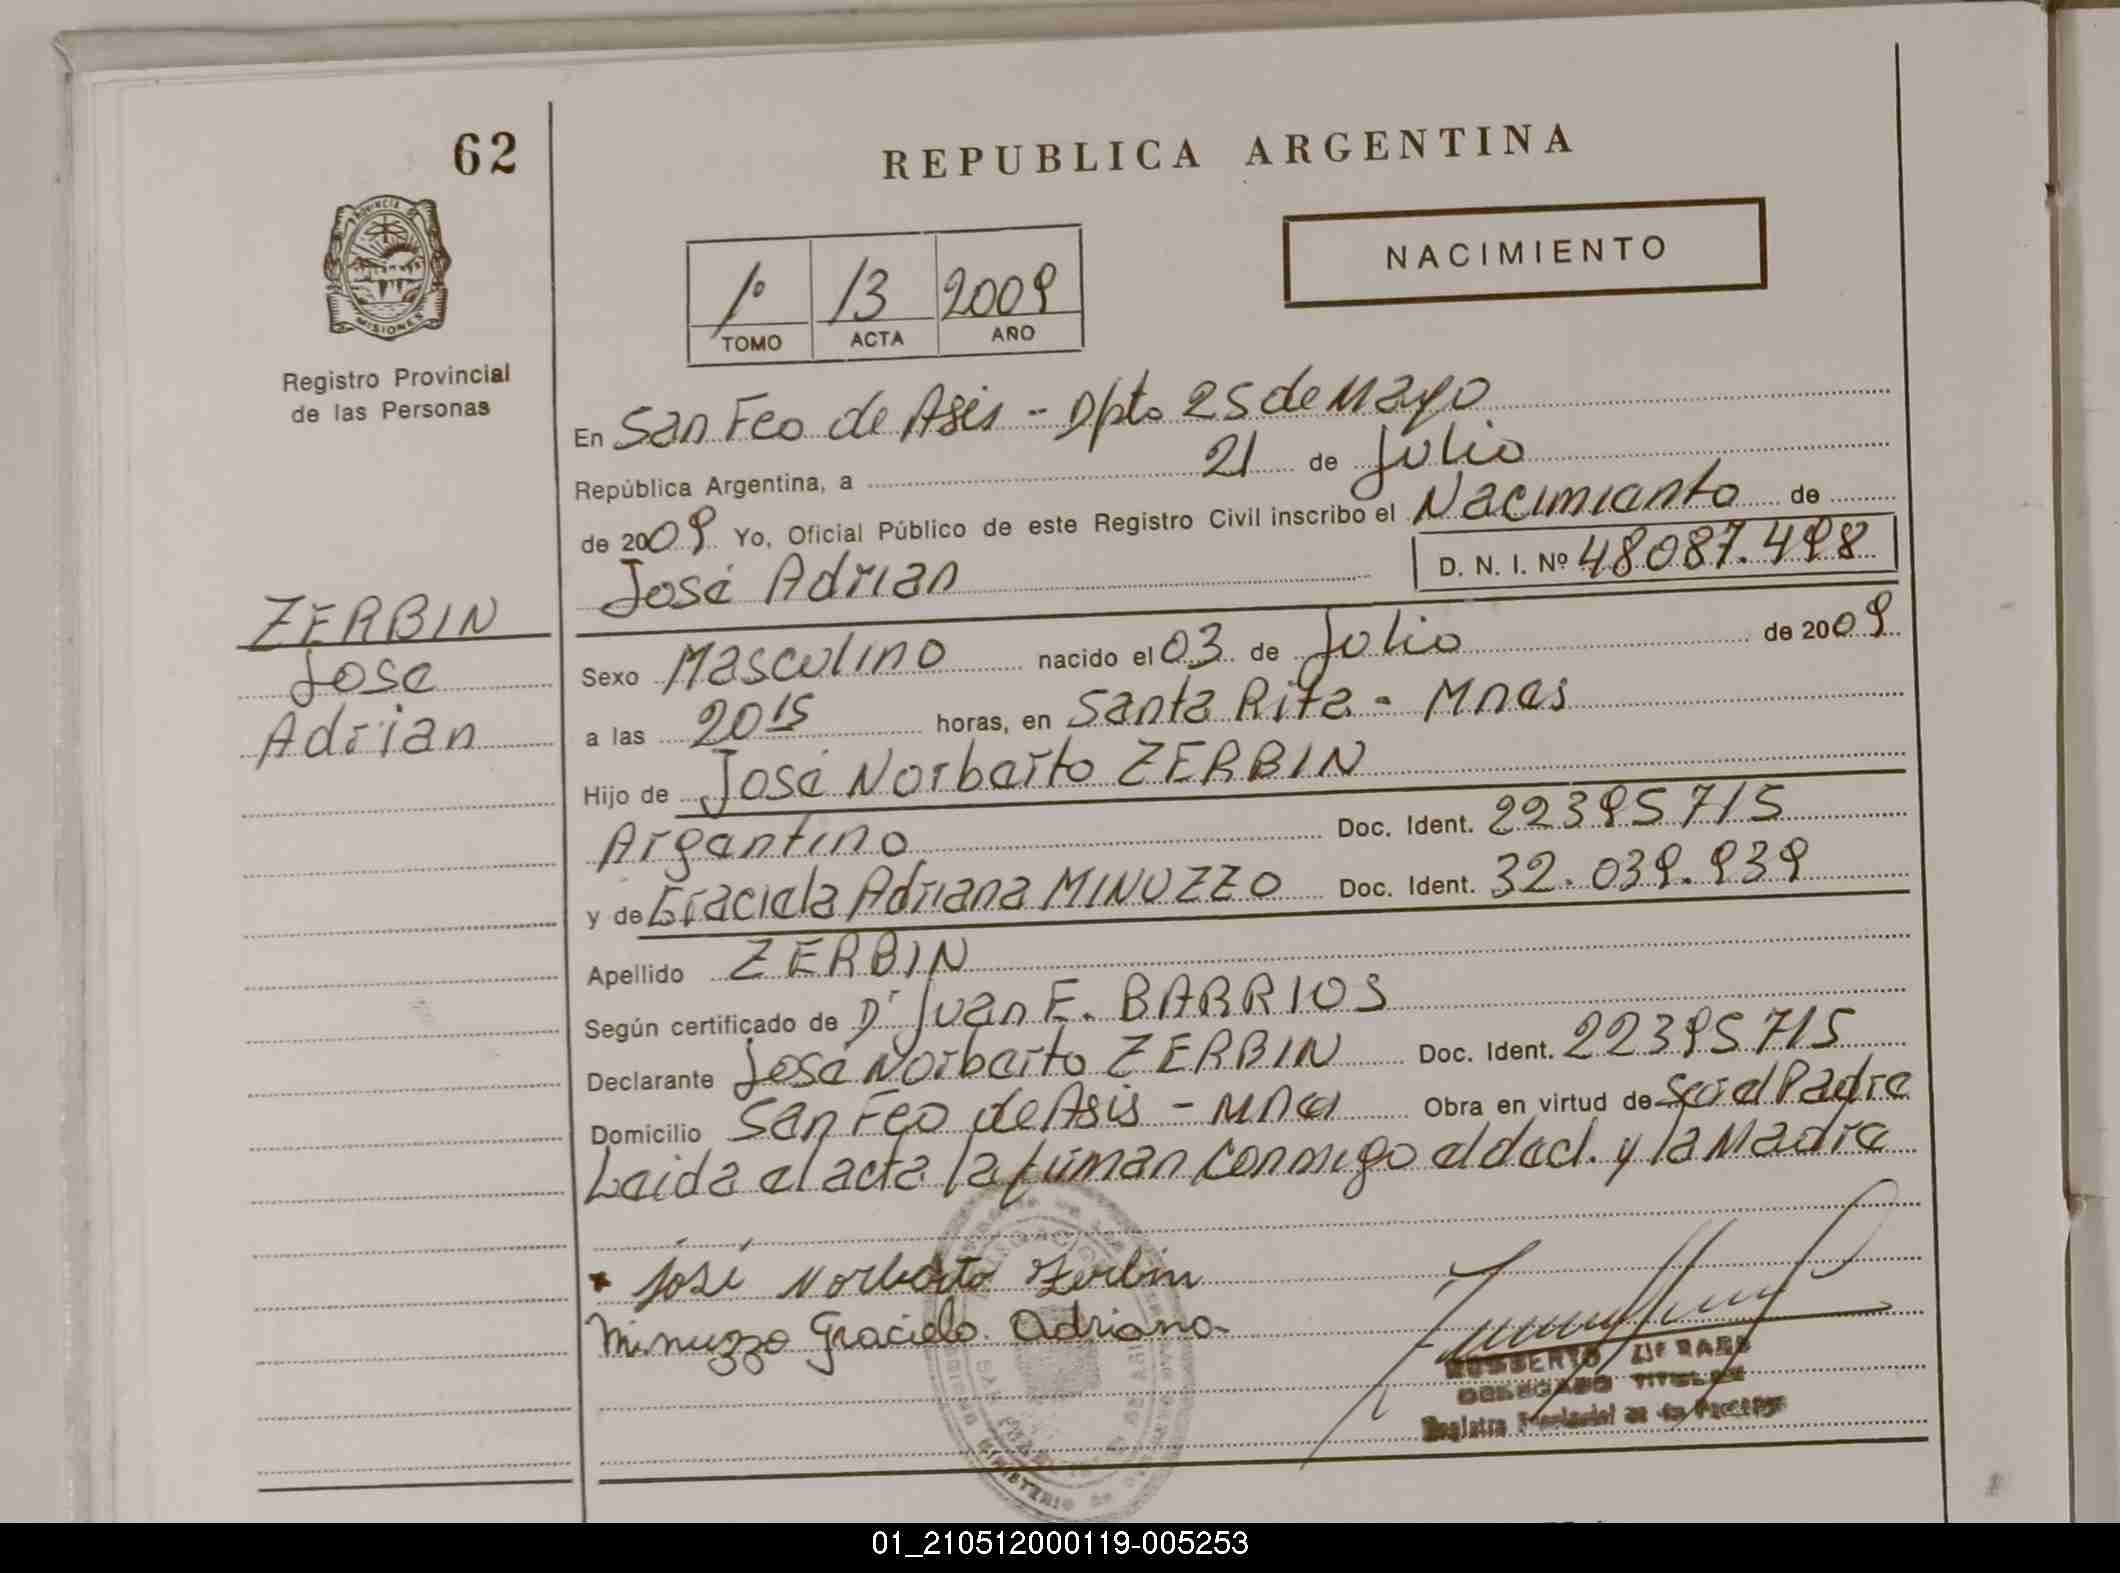 62
REPUBLICA ARGENTINA
PROVINCIA DE
MISIONES
NACIMIENTO
1º 13 2009
TOMO ACTA AÑO
Registro Provincial
de las Personas
En San Fco de Asis - Dpto 25 de Mayo
República Argentina, a 21 de Julio
de 2009 Yo, Oficial Público de este Registro Civil inscribo el Nacimiento de
José Adrian D. N. I. Nº 48087.498
ZERBIN
Jose
Adrian
Sexo Masculino nacido el 03 de Julio de 2009
a las 20 15 horas, en Santa Rita - Mnes
Hijo de José Norberto ZERBIN
Argentino Doc. Ident. 22395715
y de Graciela Adriana MINUZZO Doc. Ident. 32.039.939
Apellido ZERBIN
Según certificado de Dr Juan E. BARRIOS
Declarante José Norberto ZERBIN Doc. Ident. 22395715
Domicilio San Fco de Asis - Mnes Obra en virtud de ser el Padre
Leida el acta la firman conmigo el decl. y la Madre
José Norberto Zerbin
Minuzzo Graciela Adriana
Registro Provincial de las Personas
MINISTERIO DE
01_210512000119-005253